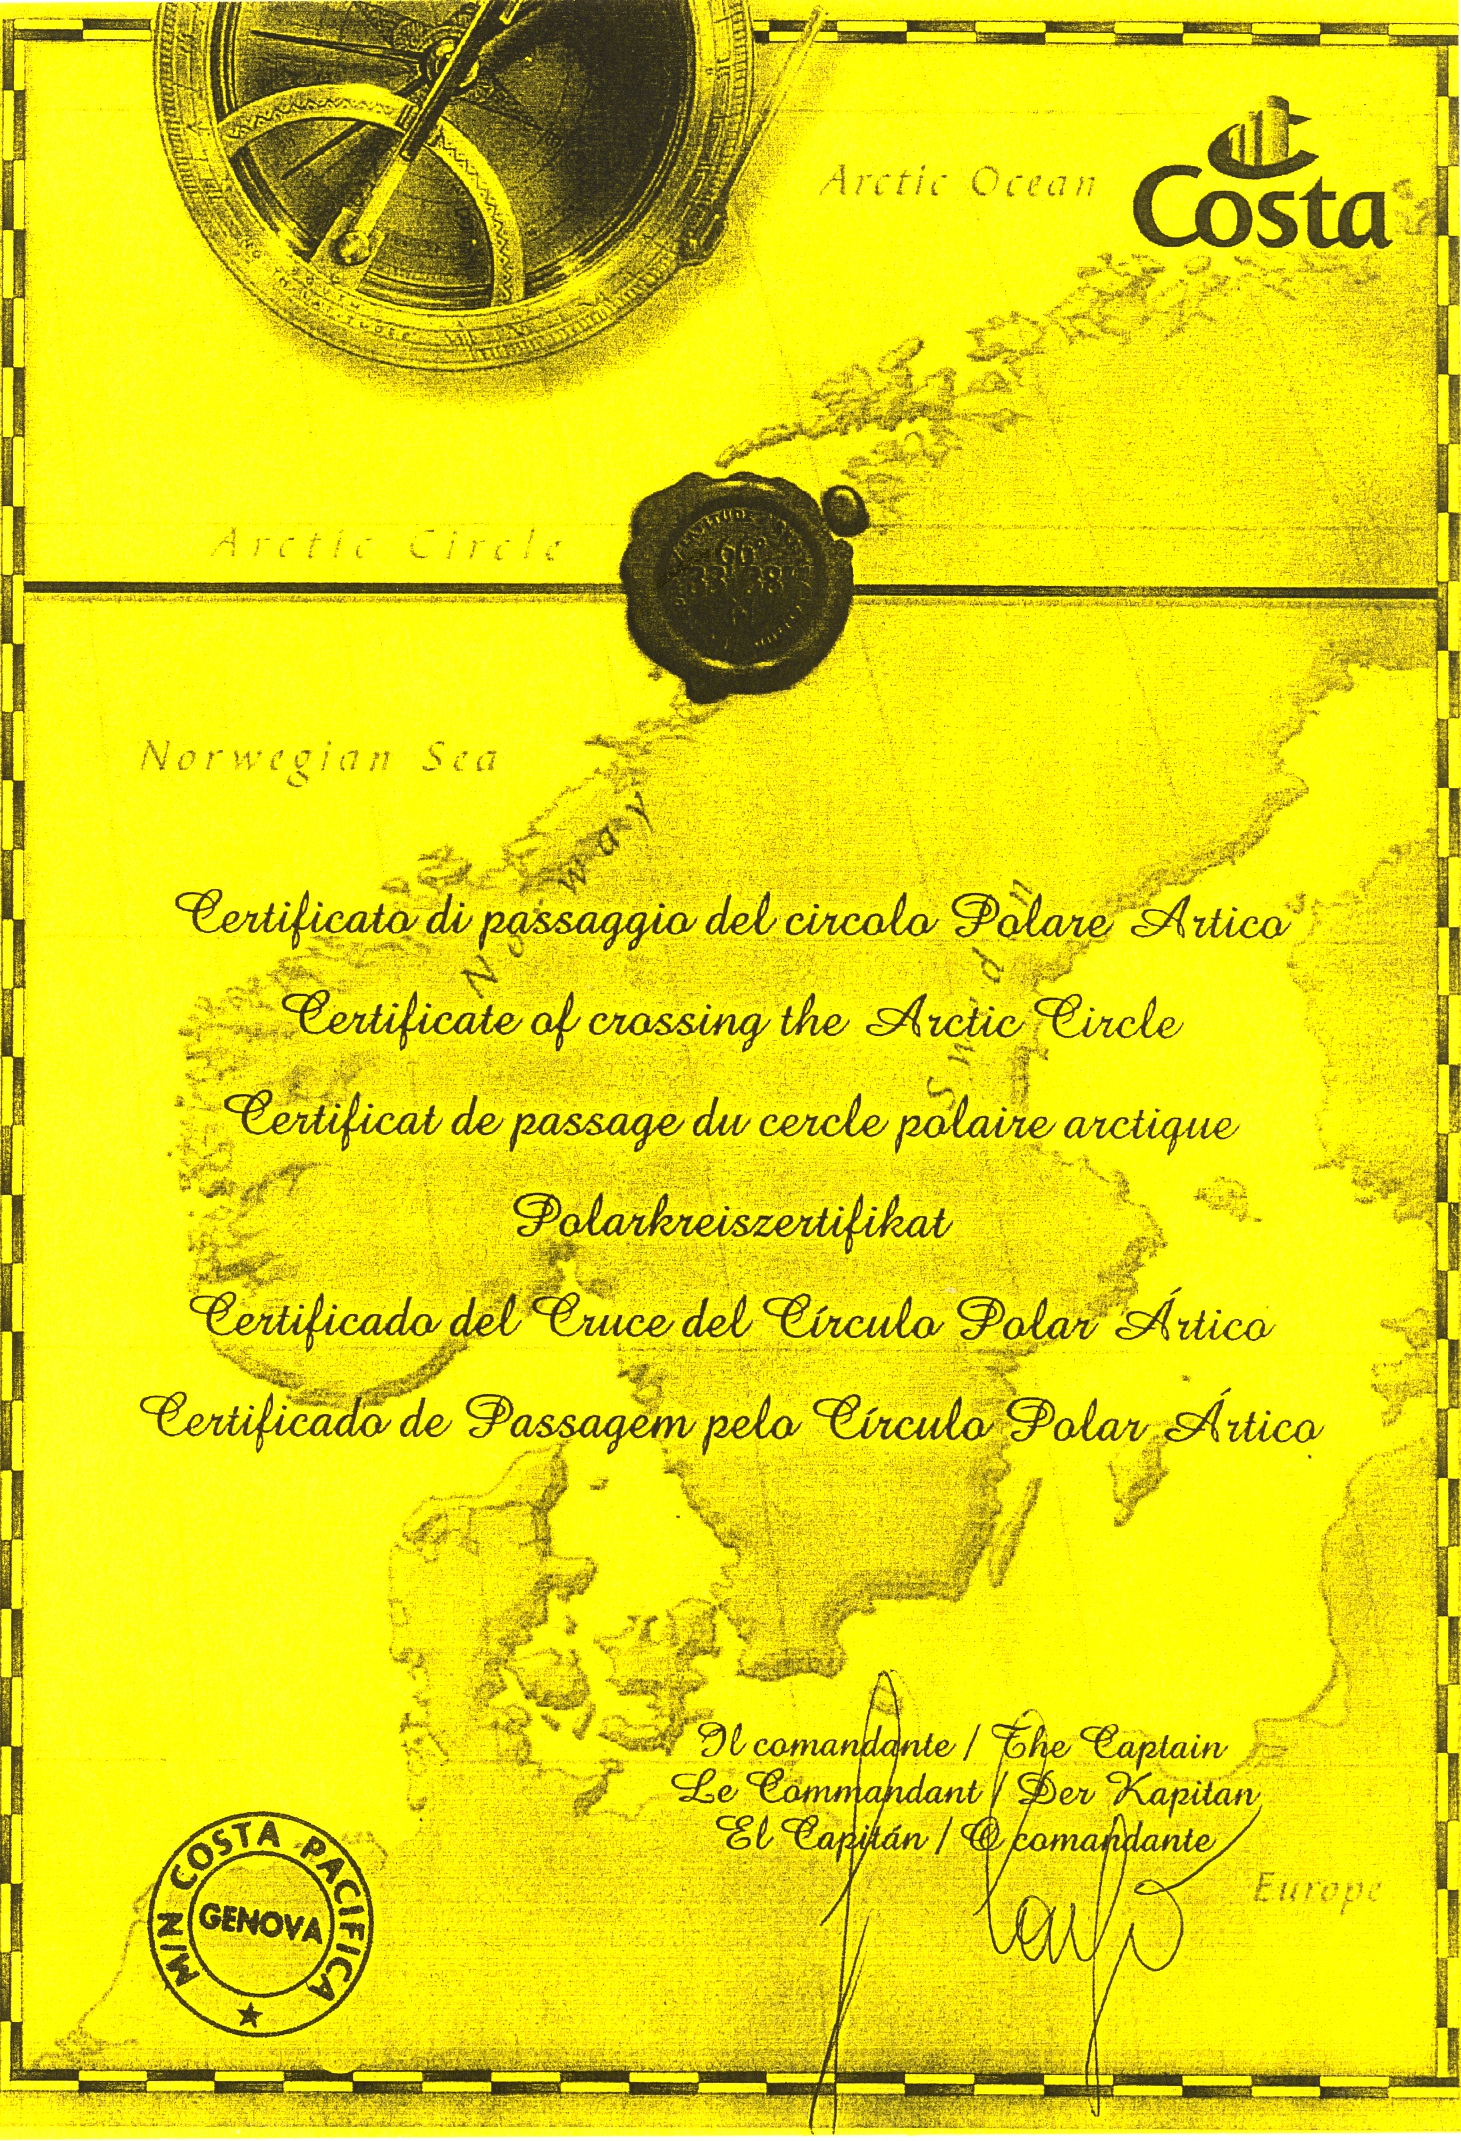 Arctic Ocean
Costa
Arctic Circle
66°
33' 38"
N
Norwegian Sea
Norway
Certificato di passaggio del circolo Polare Artico
Certificate of crossing the Arctic Circle
Certificat de passage du cercle polaire arctique
Polarkreiszertifikat
Certificado del Cruce del Círculo Polar Ártico
Certificado de Passagem pelo Círculo Polar Ártico
Il comandante / The Captain
Le Commandant / Der Kapitan
El Capitán / O comandante
Europe
M/N COSTA PACIFICA
GENOVA